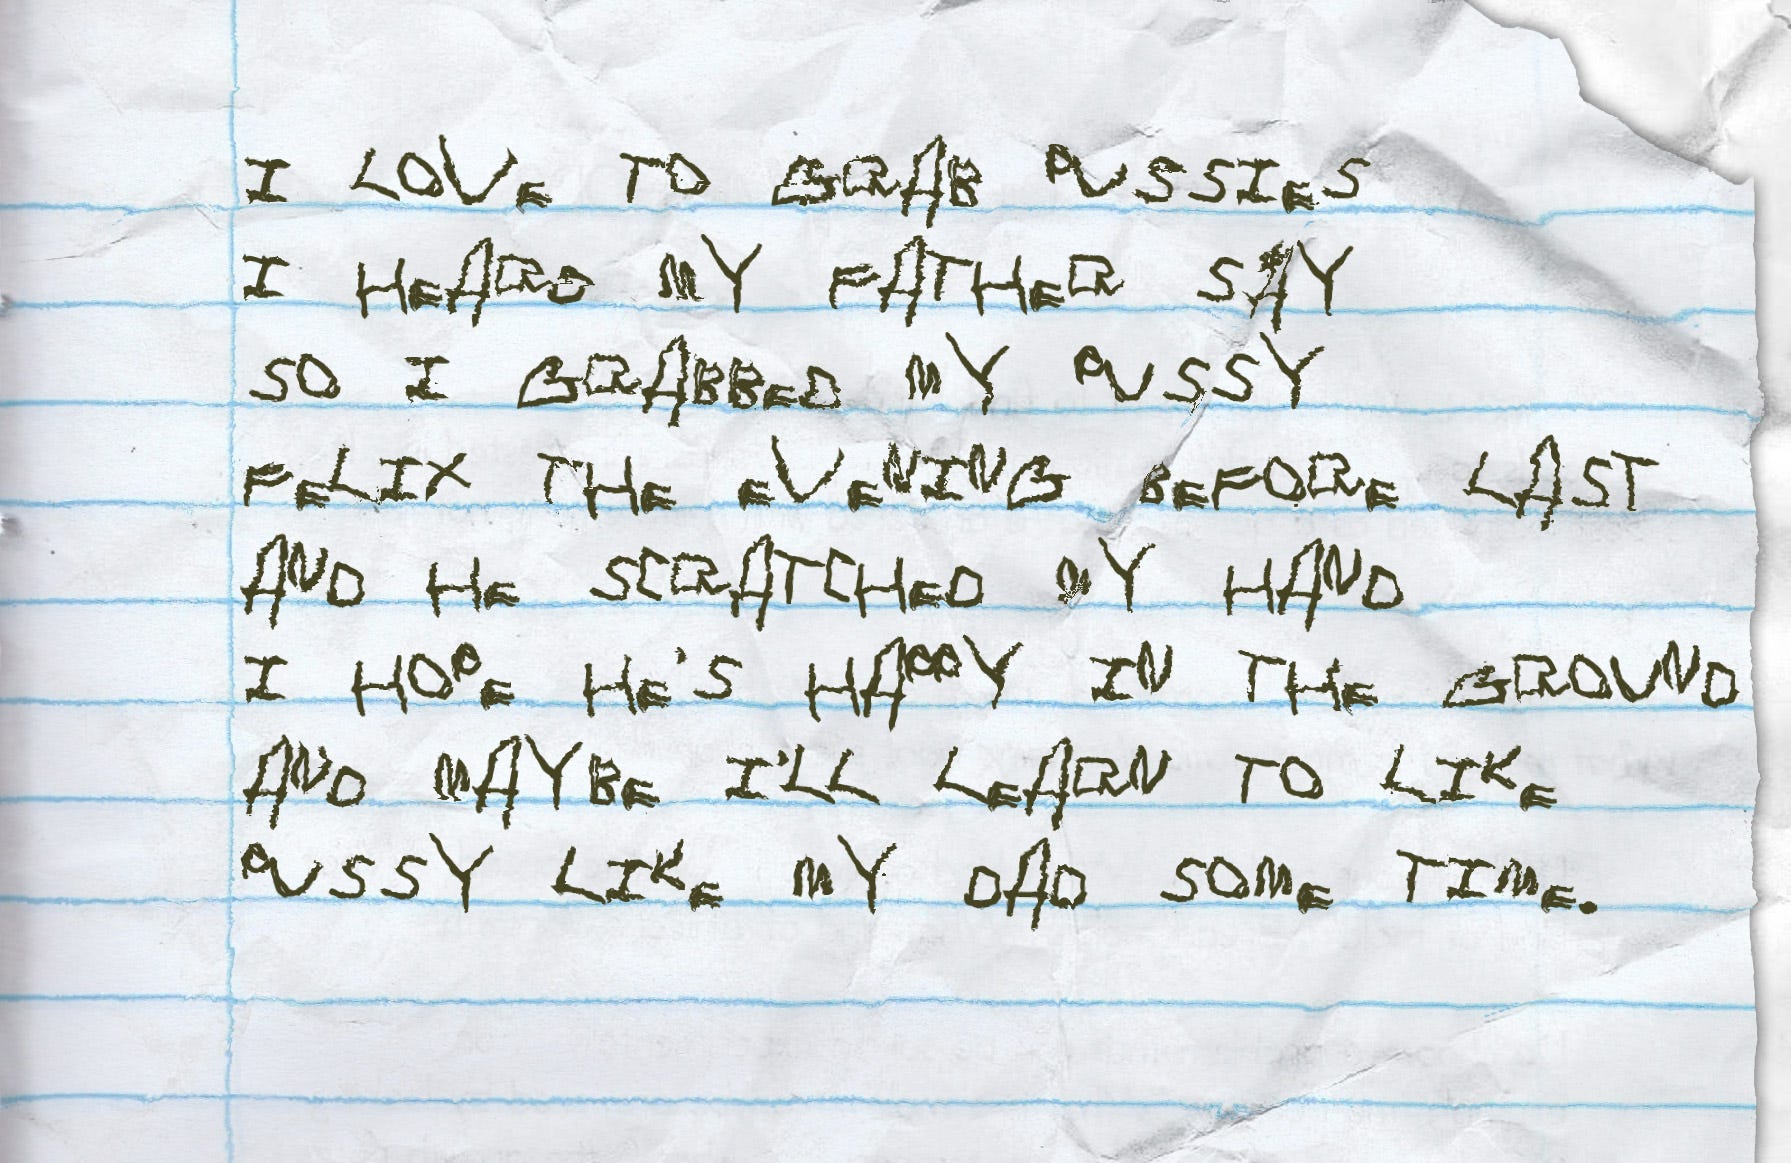 I LOVE TO GRAB PUSSIES
I HEARD MY FATHER SAY
SO I GRABBED MY PUSSY
FELIX THE EVENING BEFORE LAST
AND HE SCRATCHED MY HAND
I HOPE HE'S HAPPY IN THE GROUND
AND MAYBE I'LL LEARN TO LIKE
PUSSY LIKE MY DAD SOME TIME.